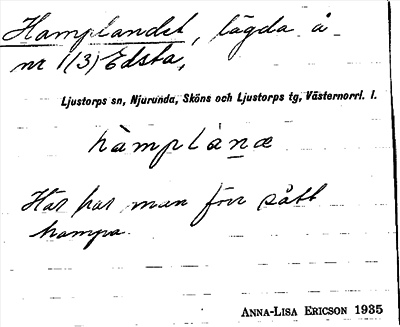 Hamplandet, lägda å
nr 1(3) Edsta,
Ljustorps sn, Njurunda, Sköns och Ljustorps tg, Västernorrl. l.
hàmplànæ
Här har man förr sått
hampa.
ANNA-LISA ERICSON 1935